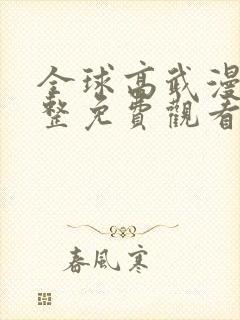 全球高武漫
整免費觀看
春風寒